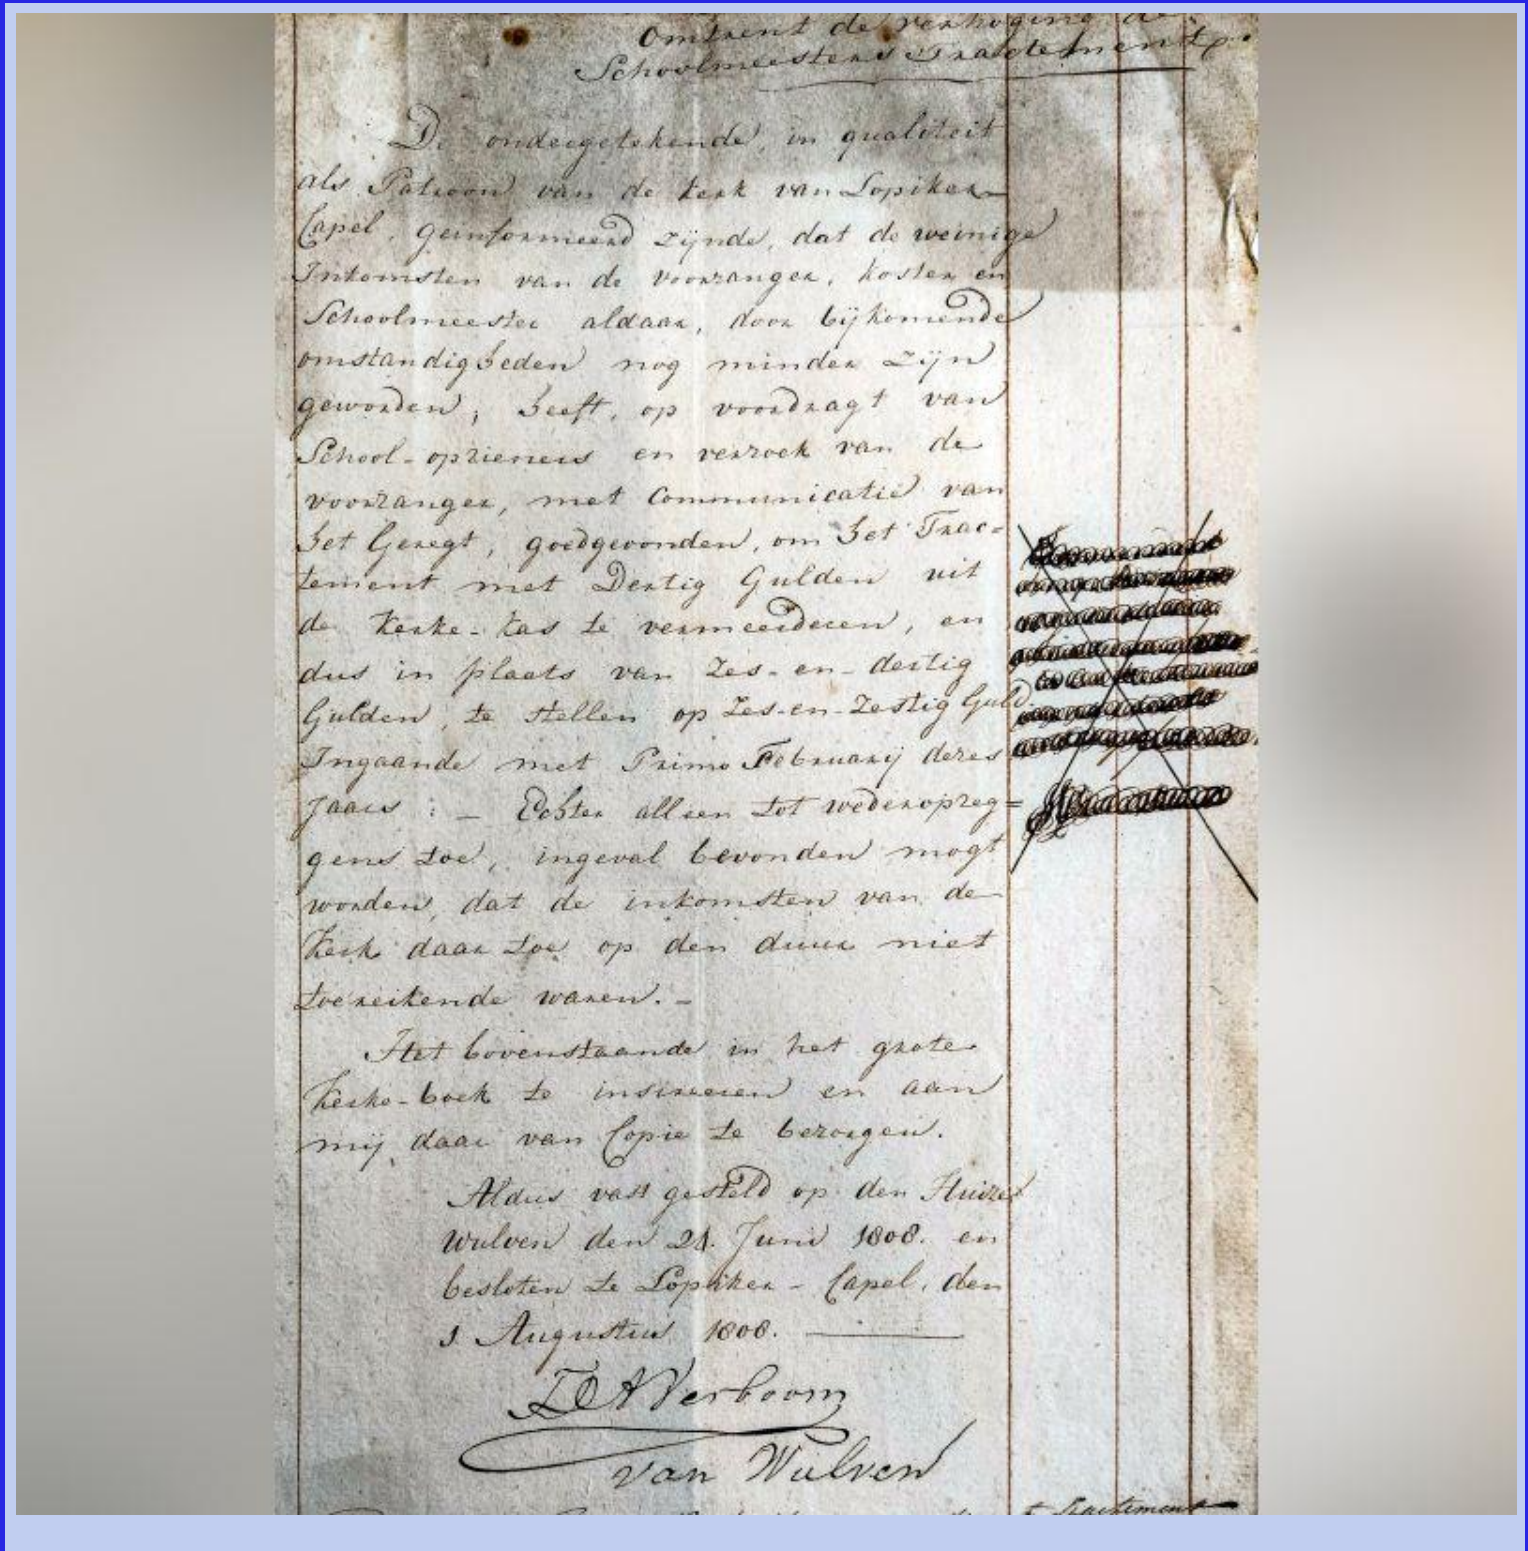 Omtrent de verhoging de
Schoolmeesters Tractement
De ondergetekende, in qualiteit
als Patroon van de kerk van Lopiker-
Capel, geinformeerd zijnde, dat de weinige
Inkomsten van de voorzanger, koster en
Schoolmeester aldaar, door bijkomende
omstandigheden nog minder zijn
geworden, heeft, op voordragt van
School-opzieners en verzoek van de
voorzanger, met Communicatie van
het Geregt, goedgevonden, om het Trac=
tement met Dertig Gulden uit
de Kerke-kas te vermeerderen, en
dus in plaats van Zes-en-dertig
Gulden, te stellen op Zes-en-Zestig Guld
Ingaande met Primo February dezes
Jaars : - Echter alleen tot wederopzeg=
gens toe, ingeval bevonden mogt
worden, dat de inkomsten van de
Kerk daar toe op den duur niet
toereikende waren. -
Het bovenstaande in het grote
Kerke-boek te insereren en aan
mij daar van Copie te bezorgen.
Aldus vast gesteld op den Huize
Wulven den 21. Juni 1808. en
besloten te Lopiker-Capel, den
1. Augustus 1808.
Verboom
van Wulven
Tractement